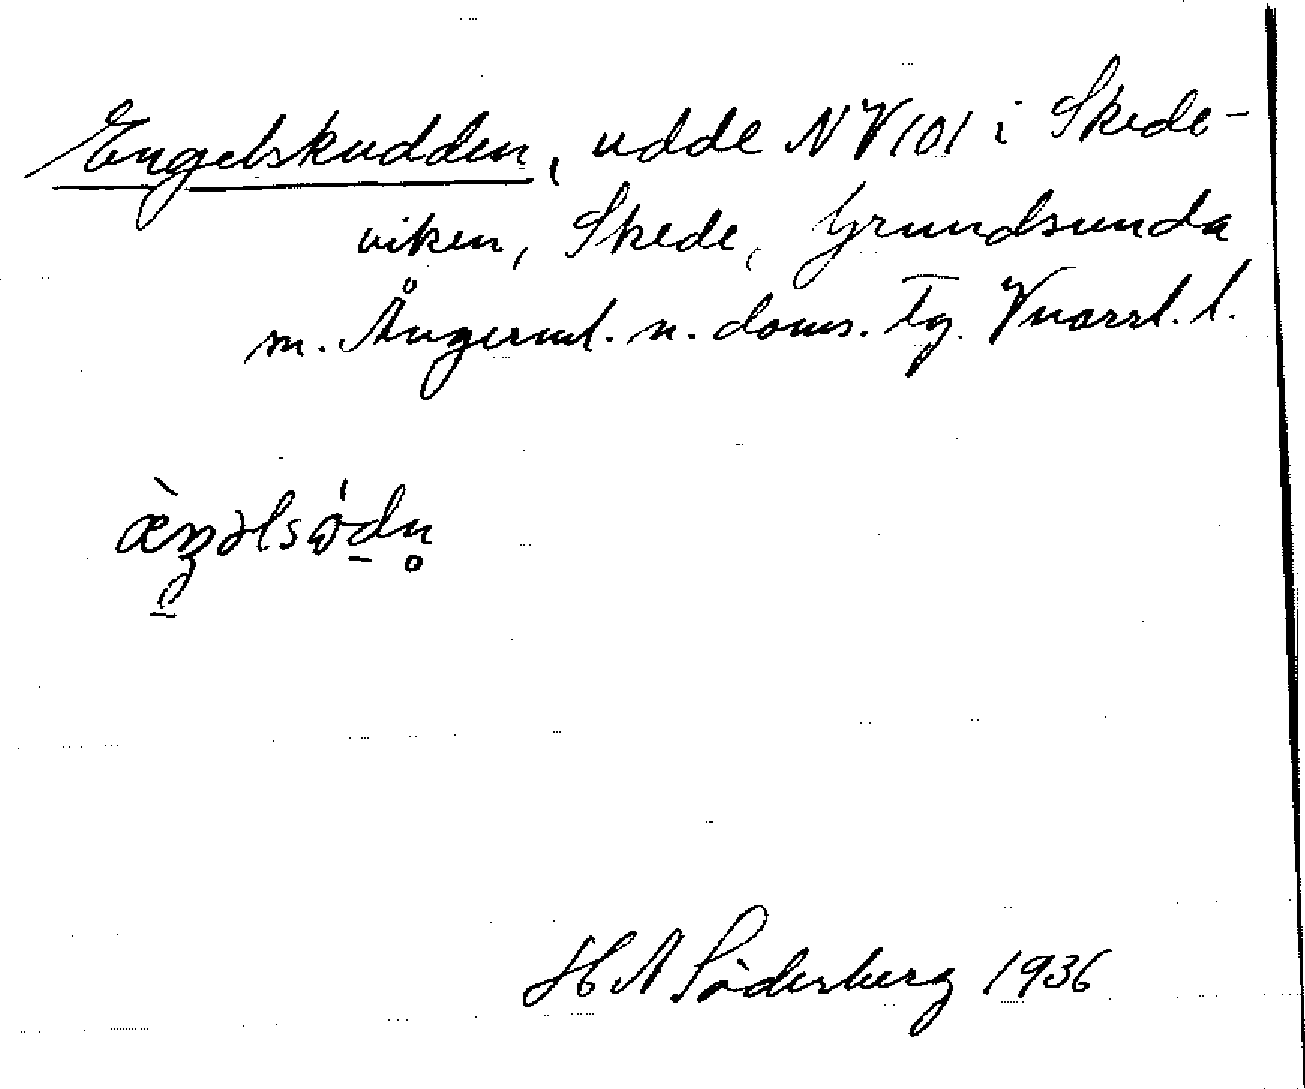 Engelskudden, udde NV(o) i Skede-
viken, Skede, Grundsunda
m. Ångerml. n. doms. Tg. Vnorrl. l.
H A Söderberg 1936